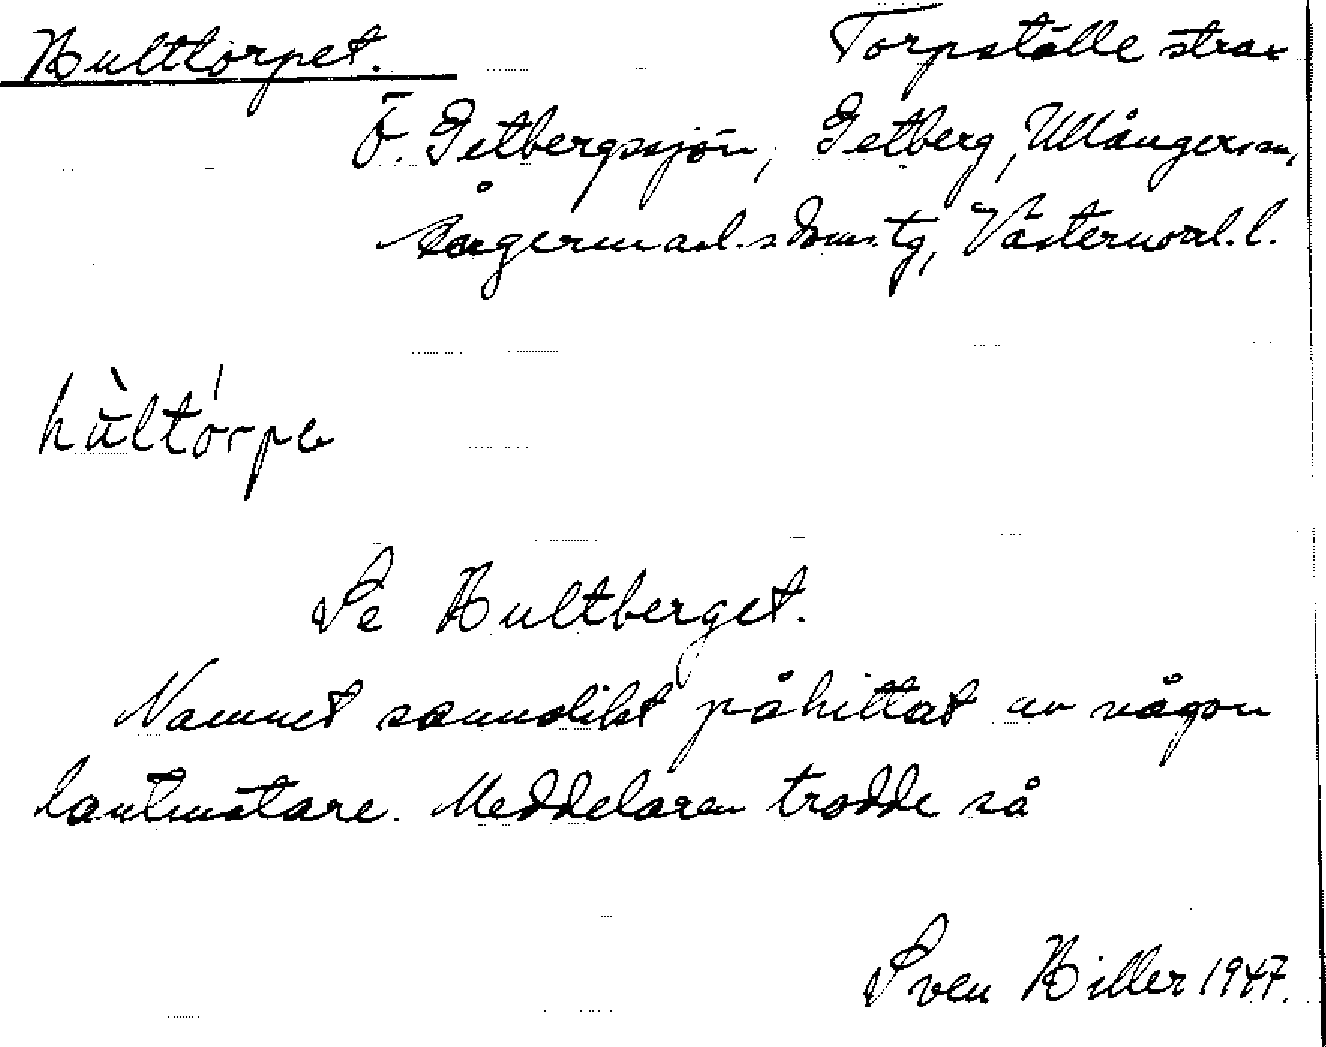 Hulttorpet. Torpställe strax
Ö. Getbergssjön, Getberg, Ullångers sn,
Ångermanl. s domstg, Västernorrl. l.
hùltórpe
Se Hultberget.
Namnet sannolikt påhittat av någon
lantmätare. Meddelaren trodde så
Sven Hiller 1947.